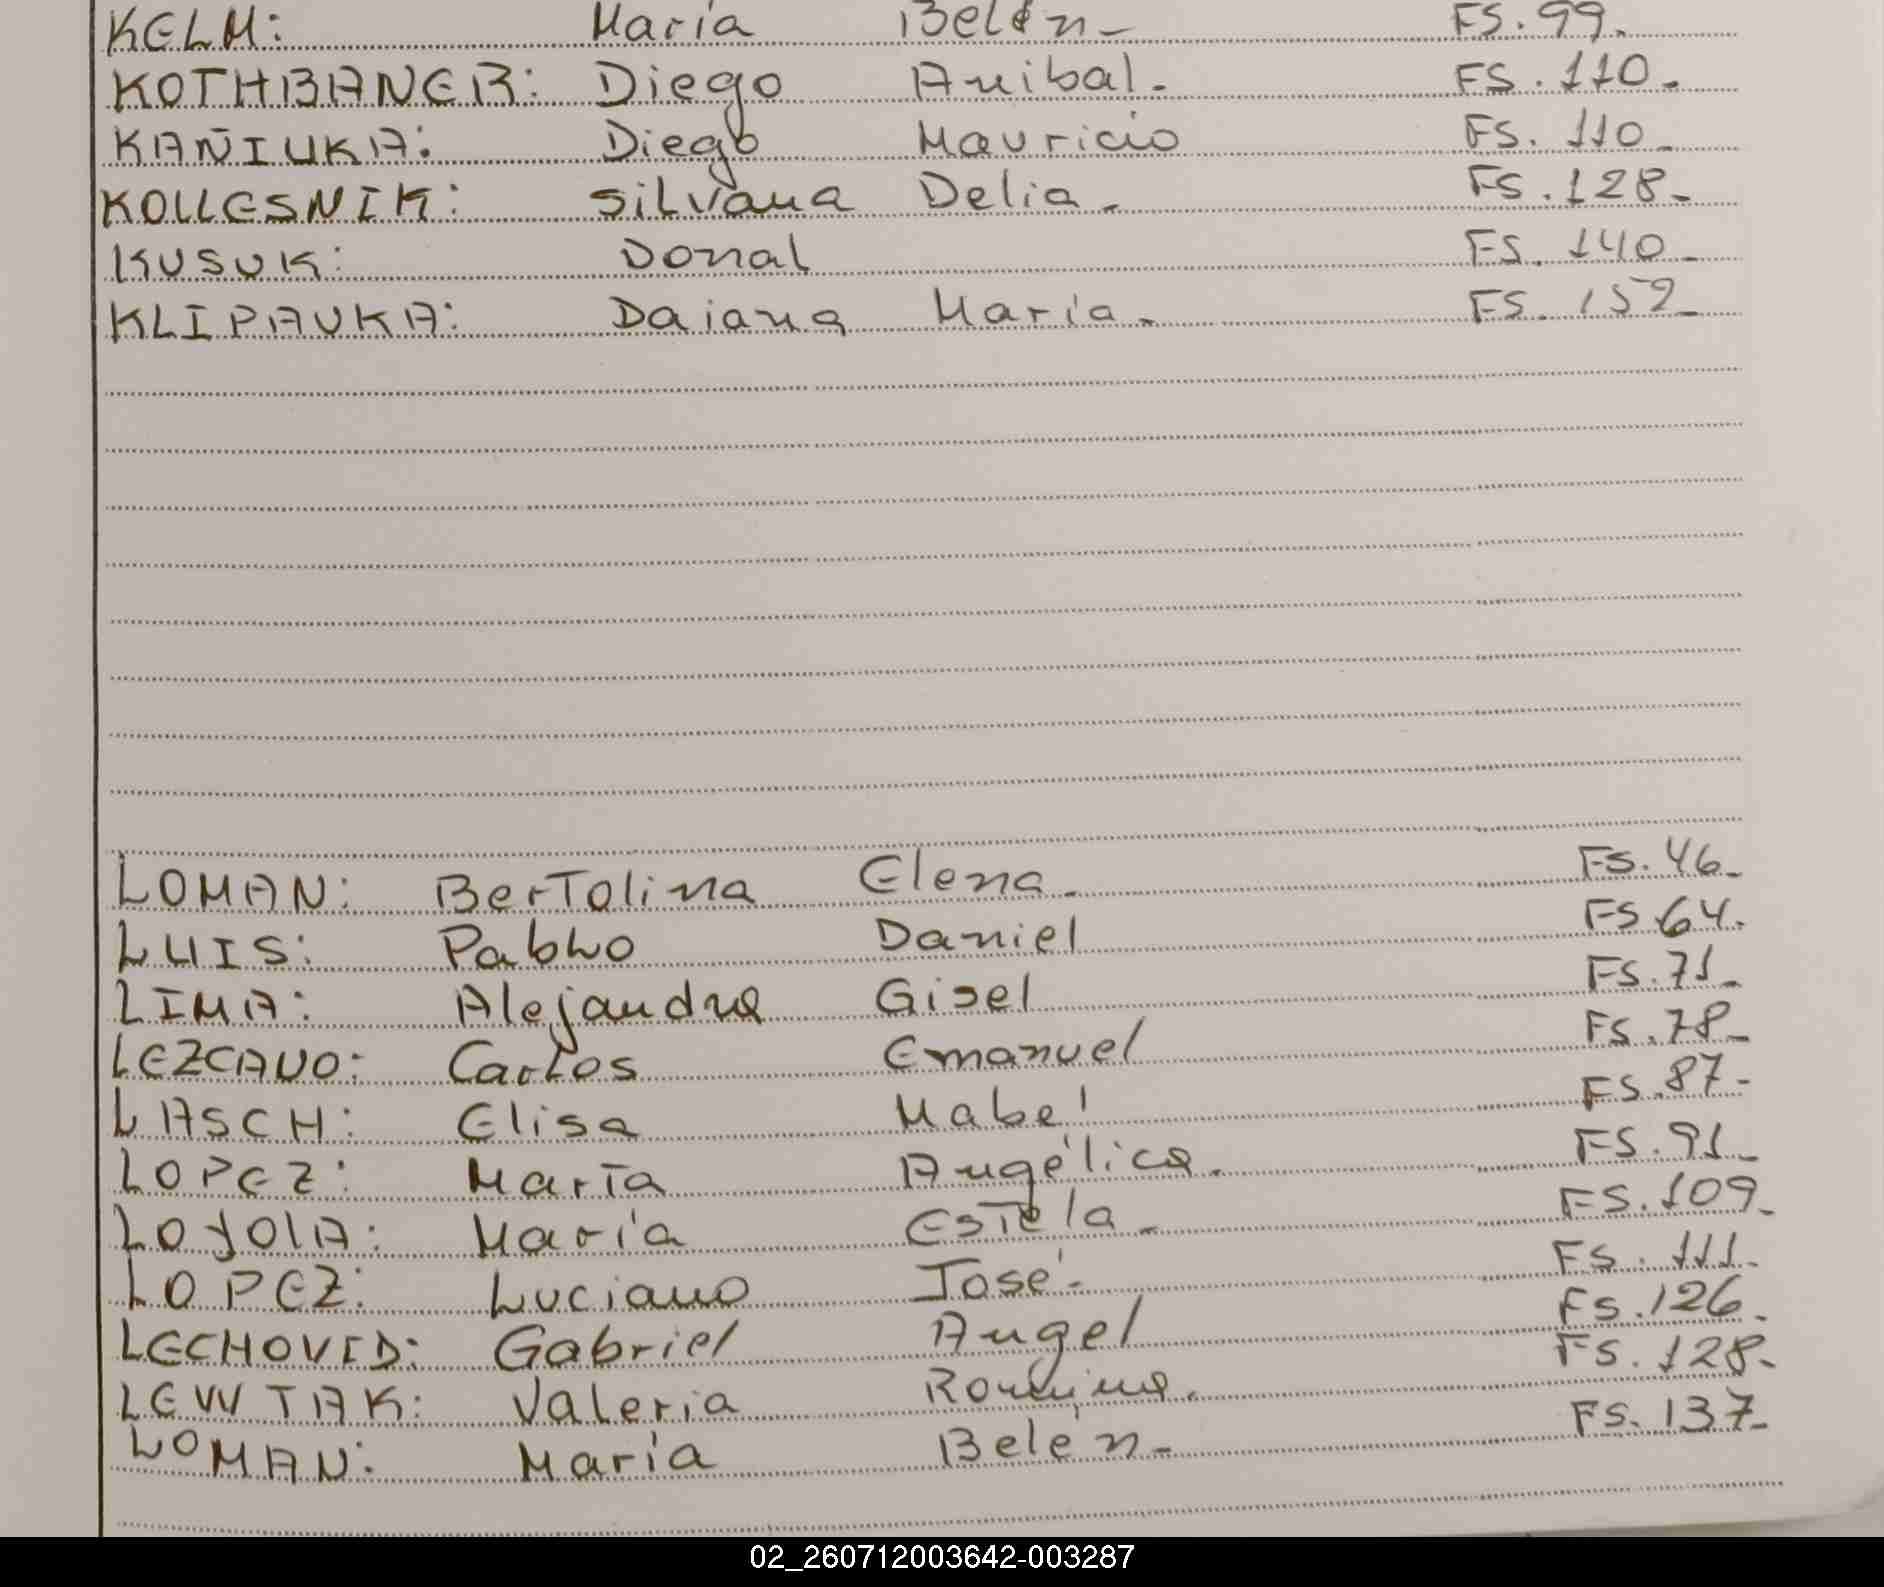 KELM: María Belén_ FS. 99.
KOTHBANER: Diego Anibal. FS. 110.
KAÑIUKA: Diego Mauricio FS. 110_
KOLLESNIK: Silvana Delia. FS. 128_
KUSUK: Donal FS. 140_
KLIPAUKA: Daiana María. FS. 152_
LOMAN: BerTolina Elena. FS. 46_
LUIS: Pablo Daniel FS. 64.
LIMA: Alejandra Gisel FS. 71_
LEZCANO: Carlos Emanuel FS. 78_
LASCH: Elisa Mabel FS. 87-
LOPEZ: María Angélica. FS. 91_
LOYOLA: María Estela_ FS. 109_
LOPEZ: Luciano José- FS. 111.
LECHOVID: Gabriel Angel FS. 126.
LEWTAK: Valeria Romina. FS. 128.
LOMAN: María Belén_ FS. 137_
02_260712003642-003287